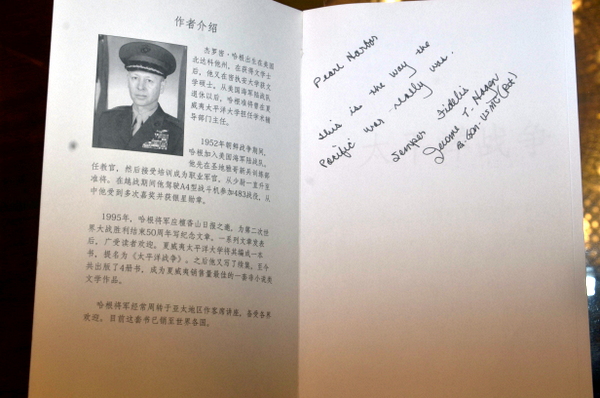 作者介绍
杰罗密·哈根出生在美国
北达科他州。在获得文学士
后，他又在密执安大学获文
学硕士。从美国海军陆战队
退休以后，哈根准将曾在夏
威夷太平洋大学担任学术辅
导部门主任。
1952年朝鲜战争期间，
哈根加入美国海军陆战队。
他先在圣地雅哥新兵训练部
任教官，然后接受培训成为职业军官，从少尉一直升至
准将。在越战期间他驾驶A4型战斗机参加483战役，从
中他受到多次嘉奖并获银星勋章。
1995年，哈根将军应檀香山日报之邀，为第二次世
界大战胜利结束50周年写纪念文章。一系列文章发表
后，广受读者欢迎。夏威夷太平洋大学将其编成一本
书，提名为《太平洋战争》。之后他又写了续集。至今
共出版了4册书，成为夏威夷销售量最佳的一套非小说类
文学作品。
哈根将军经常周转于亚太地区作客席讲座，备受各界
欢迎。目前这套书已销至世界各国。
Pearl Harbor
This is the way the
Pacific war really was.
Semper Fidelis
Jerome T. Hagen
B. Gen. USMC (Ret)